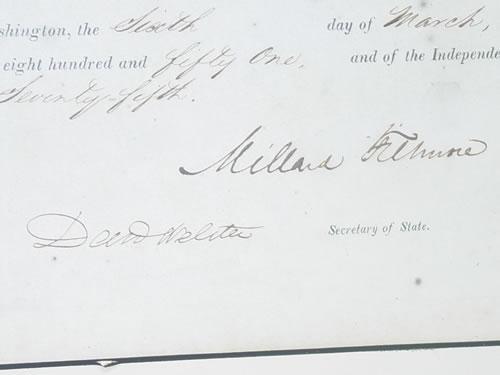 shington, the Sixth day of March,
eight hundred and fifty One, and of the Independe
Seventy-fifth.
Millard Fillmore
Secretary of State.